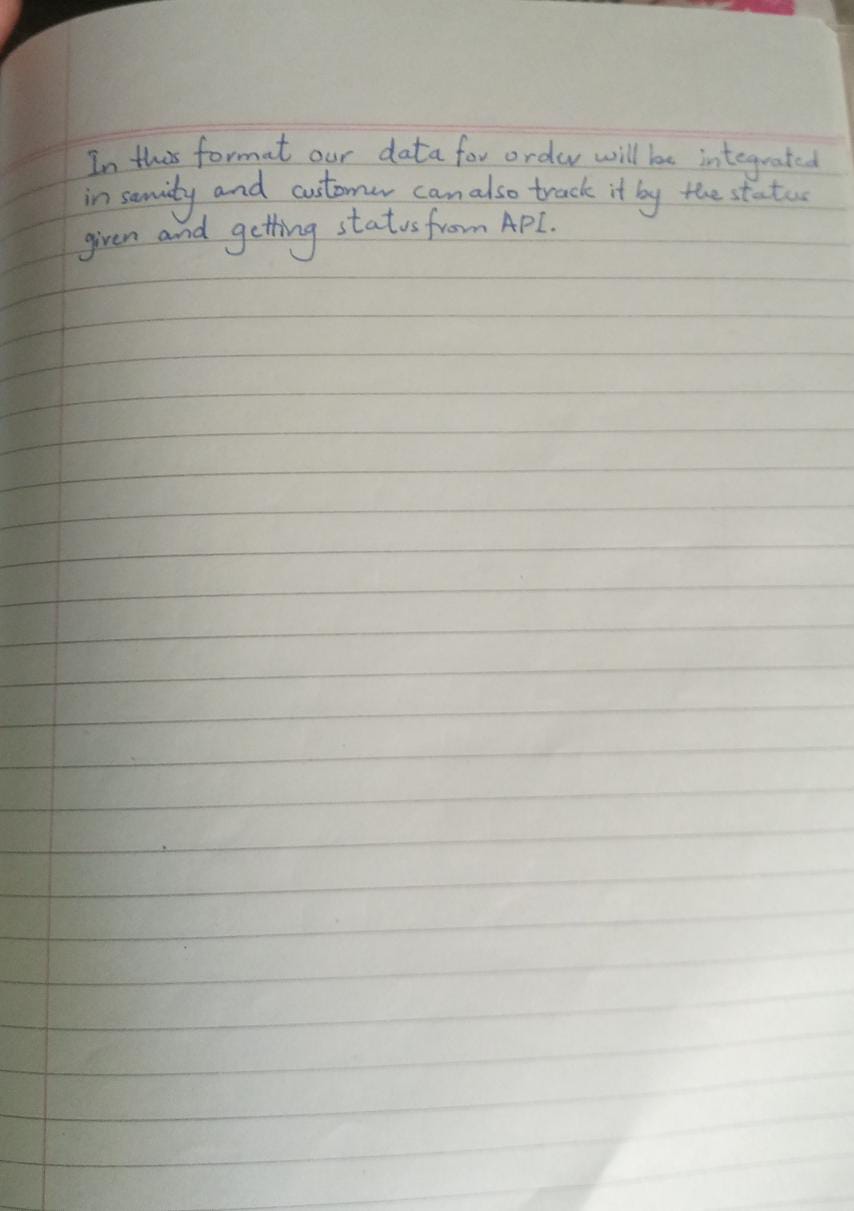 In this format our data for order will be integrated
in sanity and customer can also track it by the status
given and getting status from API.